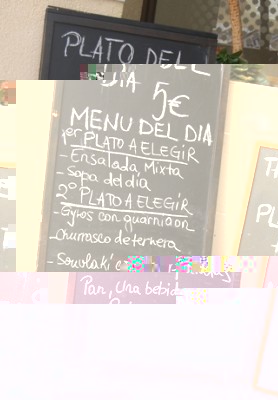 PLATO DEL
DIA 5€
MENU DEL DIA
1er PLATO A ELEGIR
- Ensalada Mixta
- Sopa del dia
2º PLATO A ELEGIR
- Gyros con guarnicion
- Churrasco de ternera
- Souvlaki
Pan, Una bebida